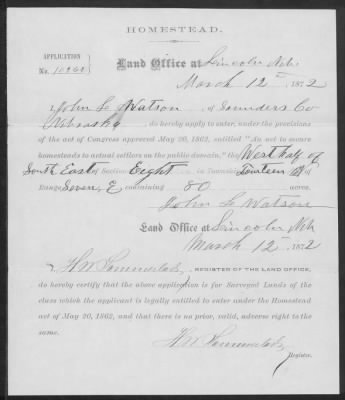 HOMESTEAD.
APPLICATION
No.
Land Office at Lincoln Neb.
March 12th 1872
I, John L Watson of Saunders Co
Nebraska, do hereby apply to enter, under the provisions
of the act of Congress approved May 20, 1862, entitled "An act to secure
homesteads to actual settlers on the public domain," the West half of
South East of Section Eight in Township Fourteen N of
Range Seven E containing 80 acres.
John L Watson
Land Office at Lincoln Neb
March 12th 1872
I, H W REGISTER OF THE LAND OFFICE,
do hereby certify that the above application is for Surveyed Lands of the
class which the applicant is legally entitled to enter under the Homestead
act of May 20, 1862, and that there is no prior, valid, adverse right to the
same.
H W
Register.